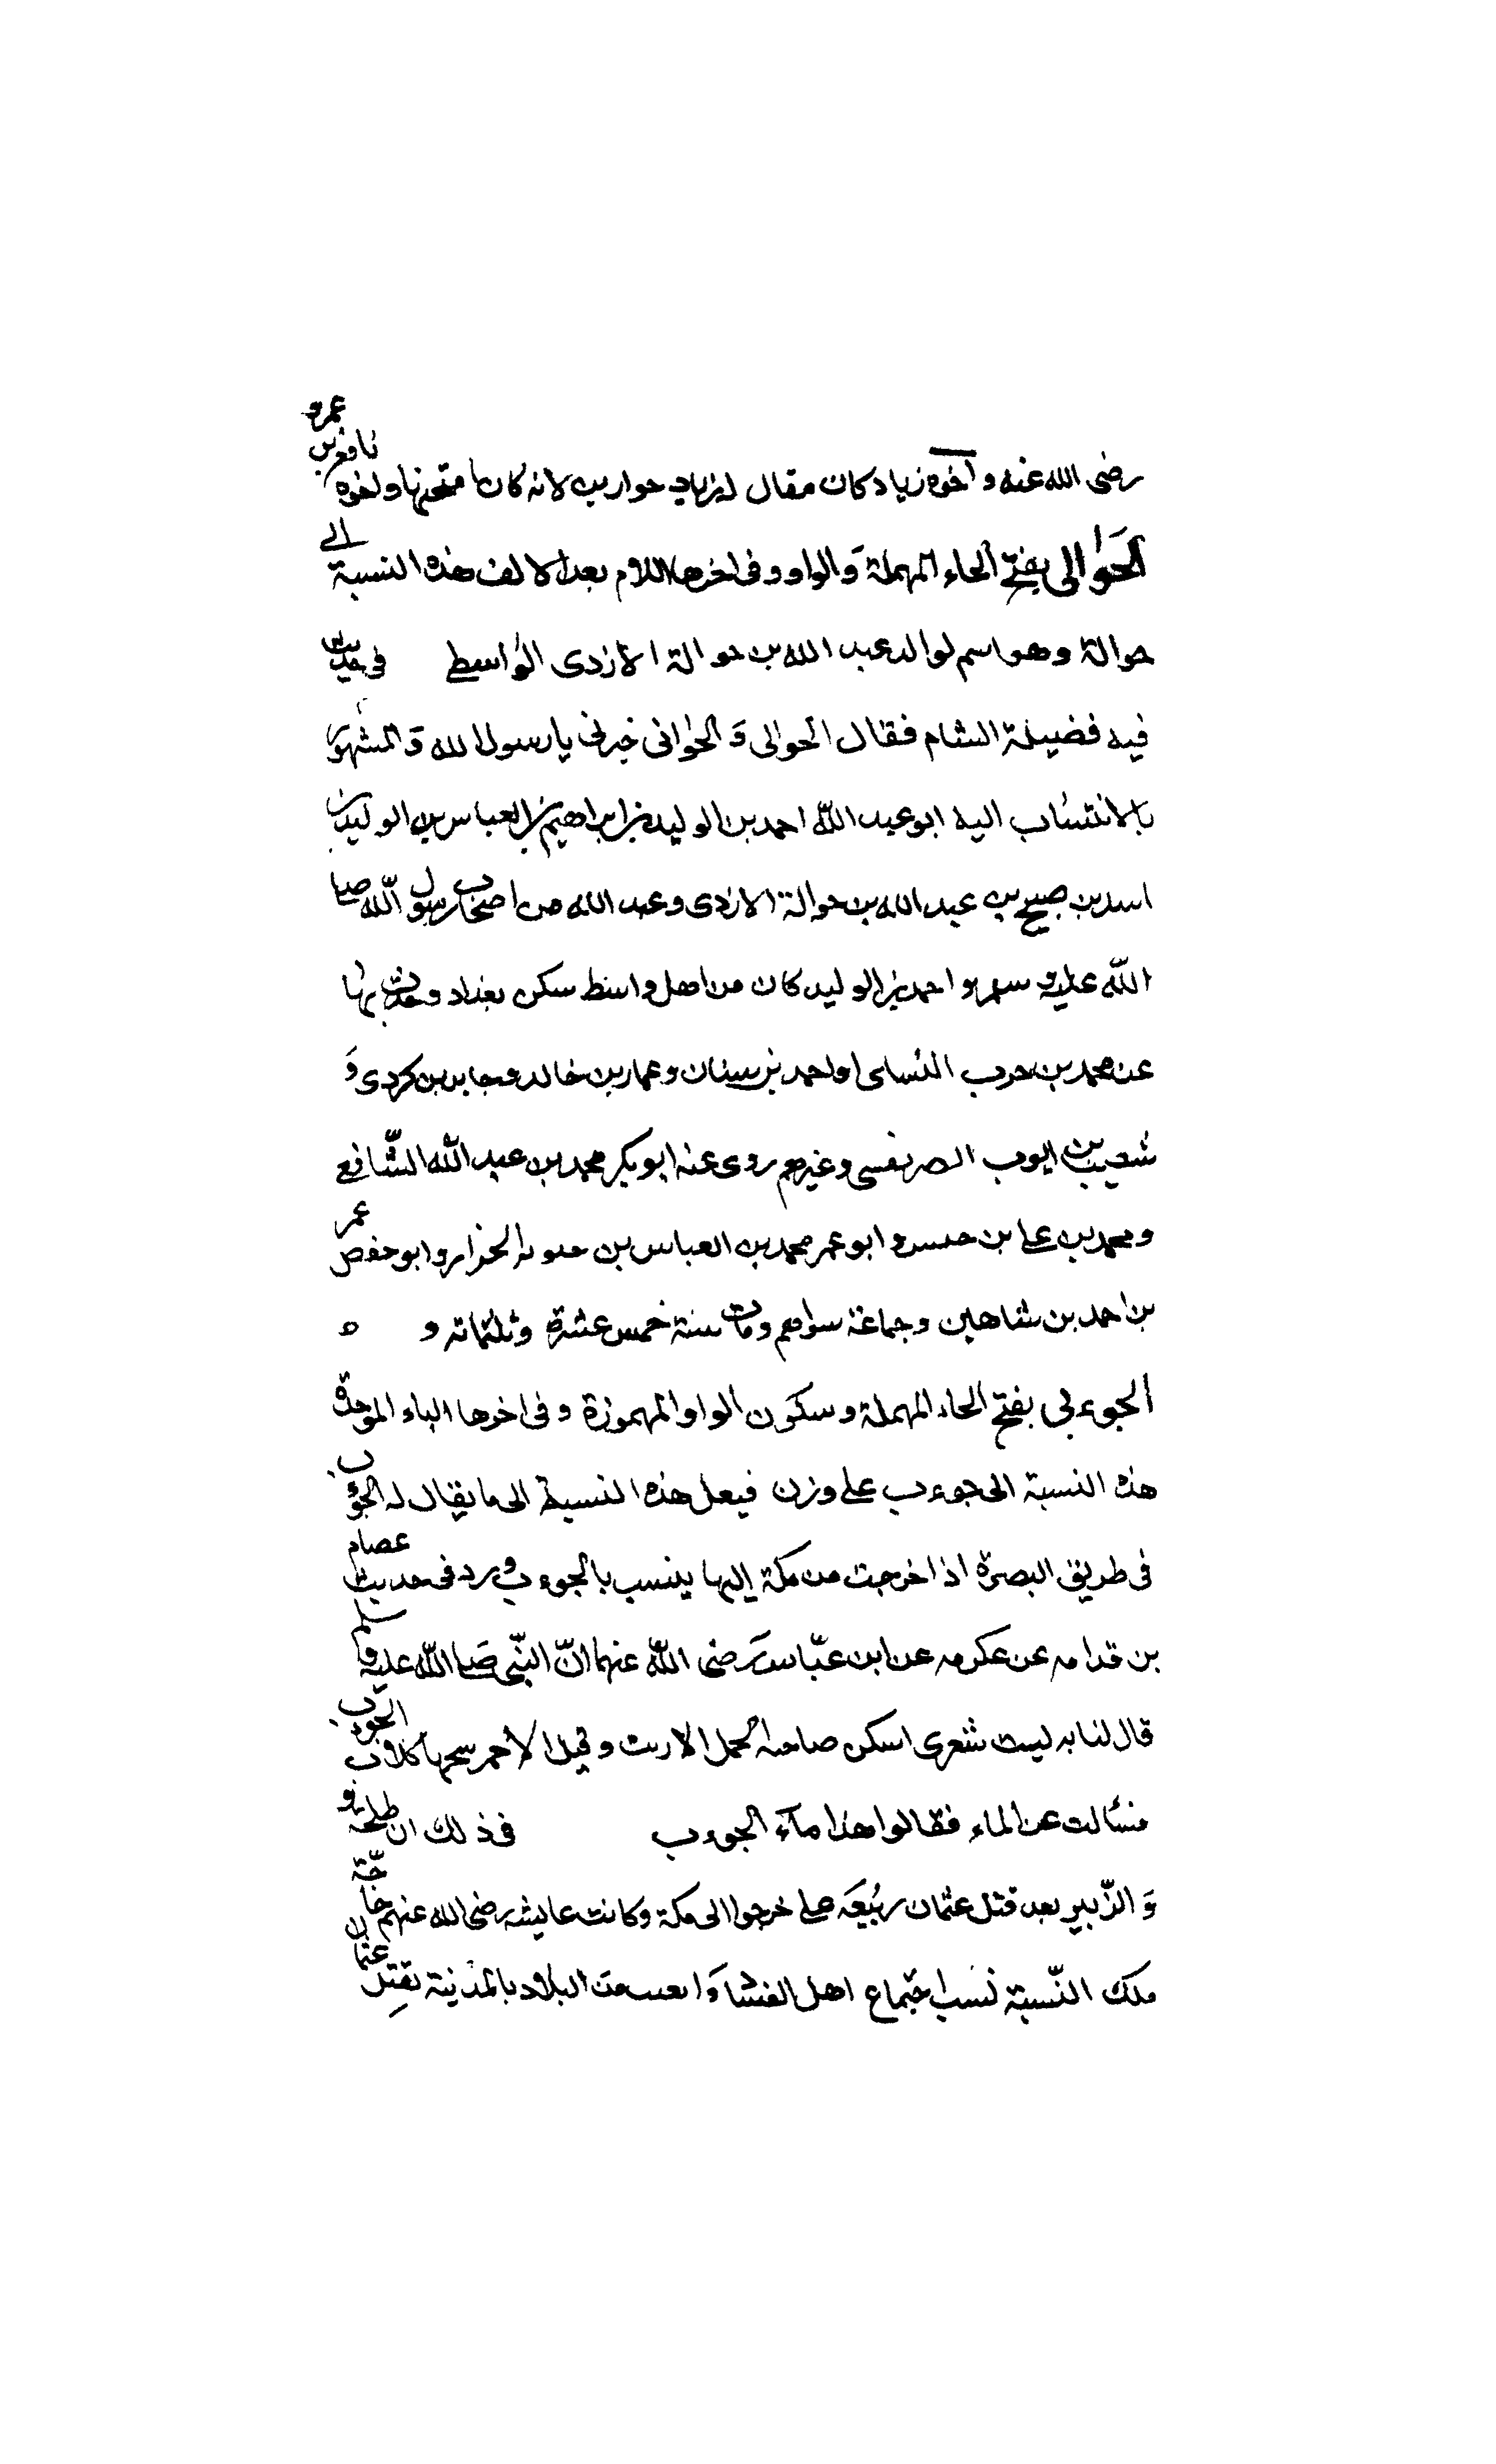 رضى الله عنه و آخوه زياد كان مقال لزياد حوارين لانه كان متحنها واخوه نافع بن عمرو
الحوالى بفتح الحاء المهملة والواو وفى اخرها اللام بعد الالف هذه النسبة الى
حوالة وهو اسم لوالد عبد الله بن حوالة الازدى الواسطى فى حديث
فيه فضيلة الشام فقال الحوالى و الحوانى خبرنى يا رسول الله و المشهور
بالانتساب اليه ابو عبد الله احمد بن الوليد بن ابراهيم بن العباس بن الوليد بن
اسد بن صبيح بن عبد الله بن حوالة الازدى وعبد الله من اصحاب رسول الله صلى
الله عليه و سلم و احمد بن الوليد كان من اهل واسط سكن بغداد وحدث بها
عن محمد بن حرب النسائى واحمد بن سنان وعمار بن خالد و جابر بن كردى و
شعيب بن ايوب الصريفسى وغيرهم روى عنه ابو بكر محمد بن عبد الله الشافعى
ومحمد بن على بن حبيش و ابو عمر محمد بن العباس بن حيويه الخزاز و ابو حفص عمر
بن احمد بن شاهين و جماعة سواهم ومات سنة خمس عشرة وثلثمائه و ه
الجوءبى بفتح الحاء المهملة وسكون الواو المهموزة وفى اخرها الباء الموحدة
هذه النسبة الى جوءب على وزن فيعل هذه النسبة الى ما يقال له الجوءب
فى طريق البصرة اذا خرجت من مكة إليها ينسب بالجوءب وورد فى حديث عصام
بن قدامه عن عكرمه عن ابن عبّاس رضى الله عنهما انّ النّبى صلى الله عليه وسلم
قال لنسابه ليت شعرى اسكن صاحبة الجمل الاربت وقيل الأحمر سحها كلاب الجوءب
فسألت عن الماء فقالوا هذا مآء الجوءب فى ذلك ان طلحة
وَ الزّبير بعد قتل عثمان ربيعَه على خرجوا الى مكة وكانت عايشه رضى الله عنهم حاجّة
ملك النّسبة اجتماع اهل البلاد بالمدينة بقتل عثمان